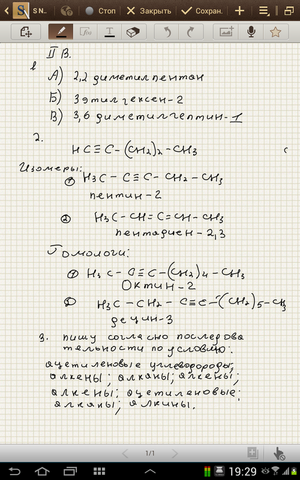 S N..
Стоп
Закрыть
Сохран.
II В.
1
А) 2,2 диметилпентан
Б) 3 этилгексен-2
В) 3,6 диметилгептин-1
2.
HC≡C-(CH₂)₂-CH₃
Изомеры:
① H₃C-C≡C-CH₂-CH₃
пентин-2
② H₃C-CH=C=CH-CH₃
пентадиен-2,3
Гомологи:
① H₃C-C≡C-(CH₂)₄-CH₃
Октин-2
② H₃C-CH₂-C≡C-(CH₂)₅-CH₃
децин-3
3. пишу согласно последова
тельности по условию:
ацетиленовые углеводороды;
алкены; алканы; алкены;
алкены; ацетиленовые;
алканы; алкины.
1/1
19:29